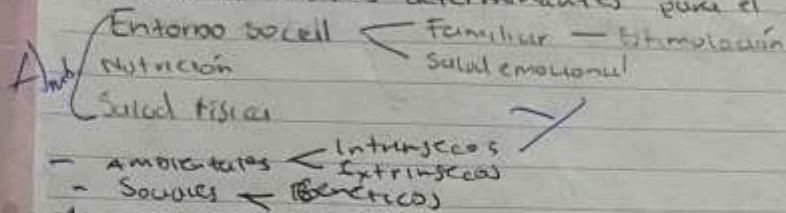 determinantes para el
Entorno socell < Familiar — Estimulación
Salud emocional
Amb
Nutrición
Salud física
- Ambientales < Intrinsecos
Extrinsecos
- Sociales < Genéticos